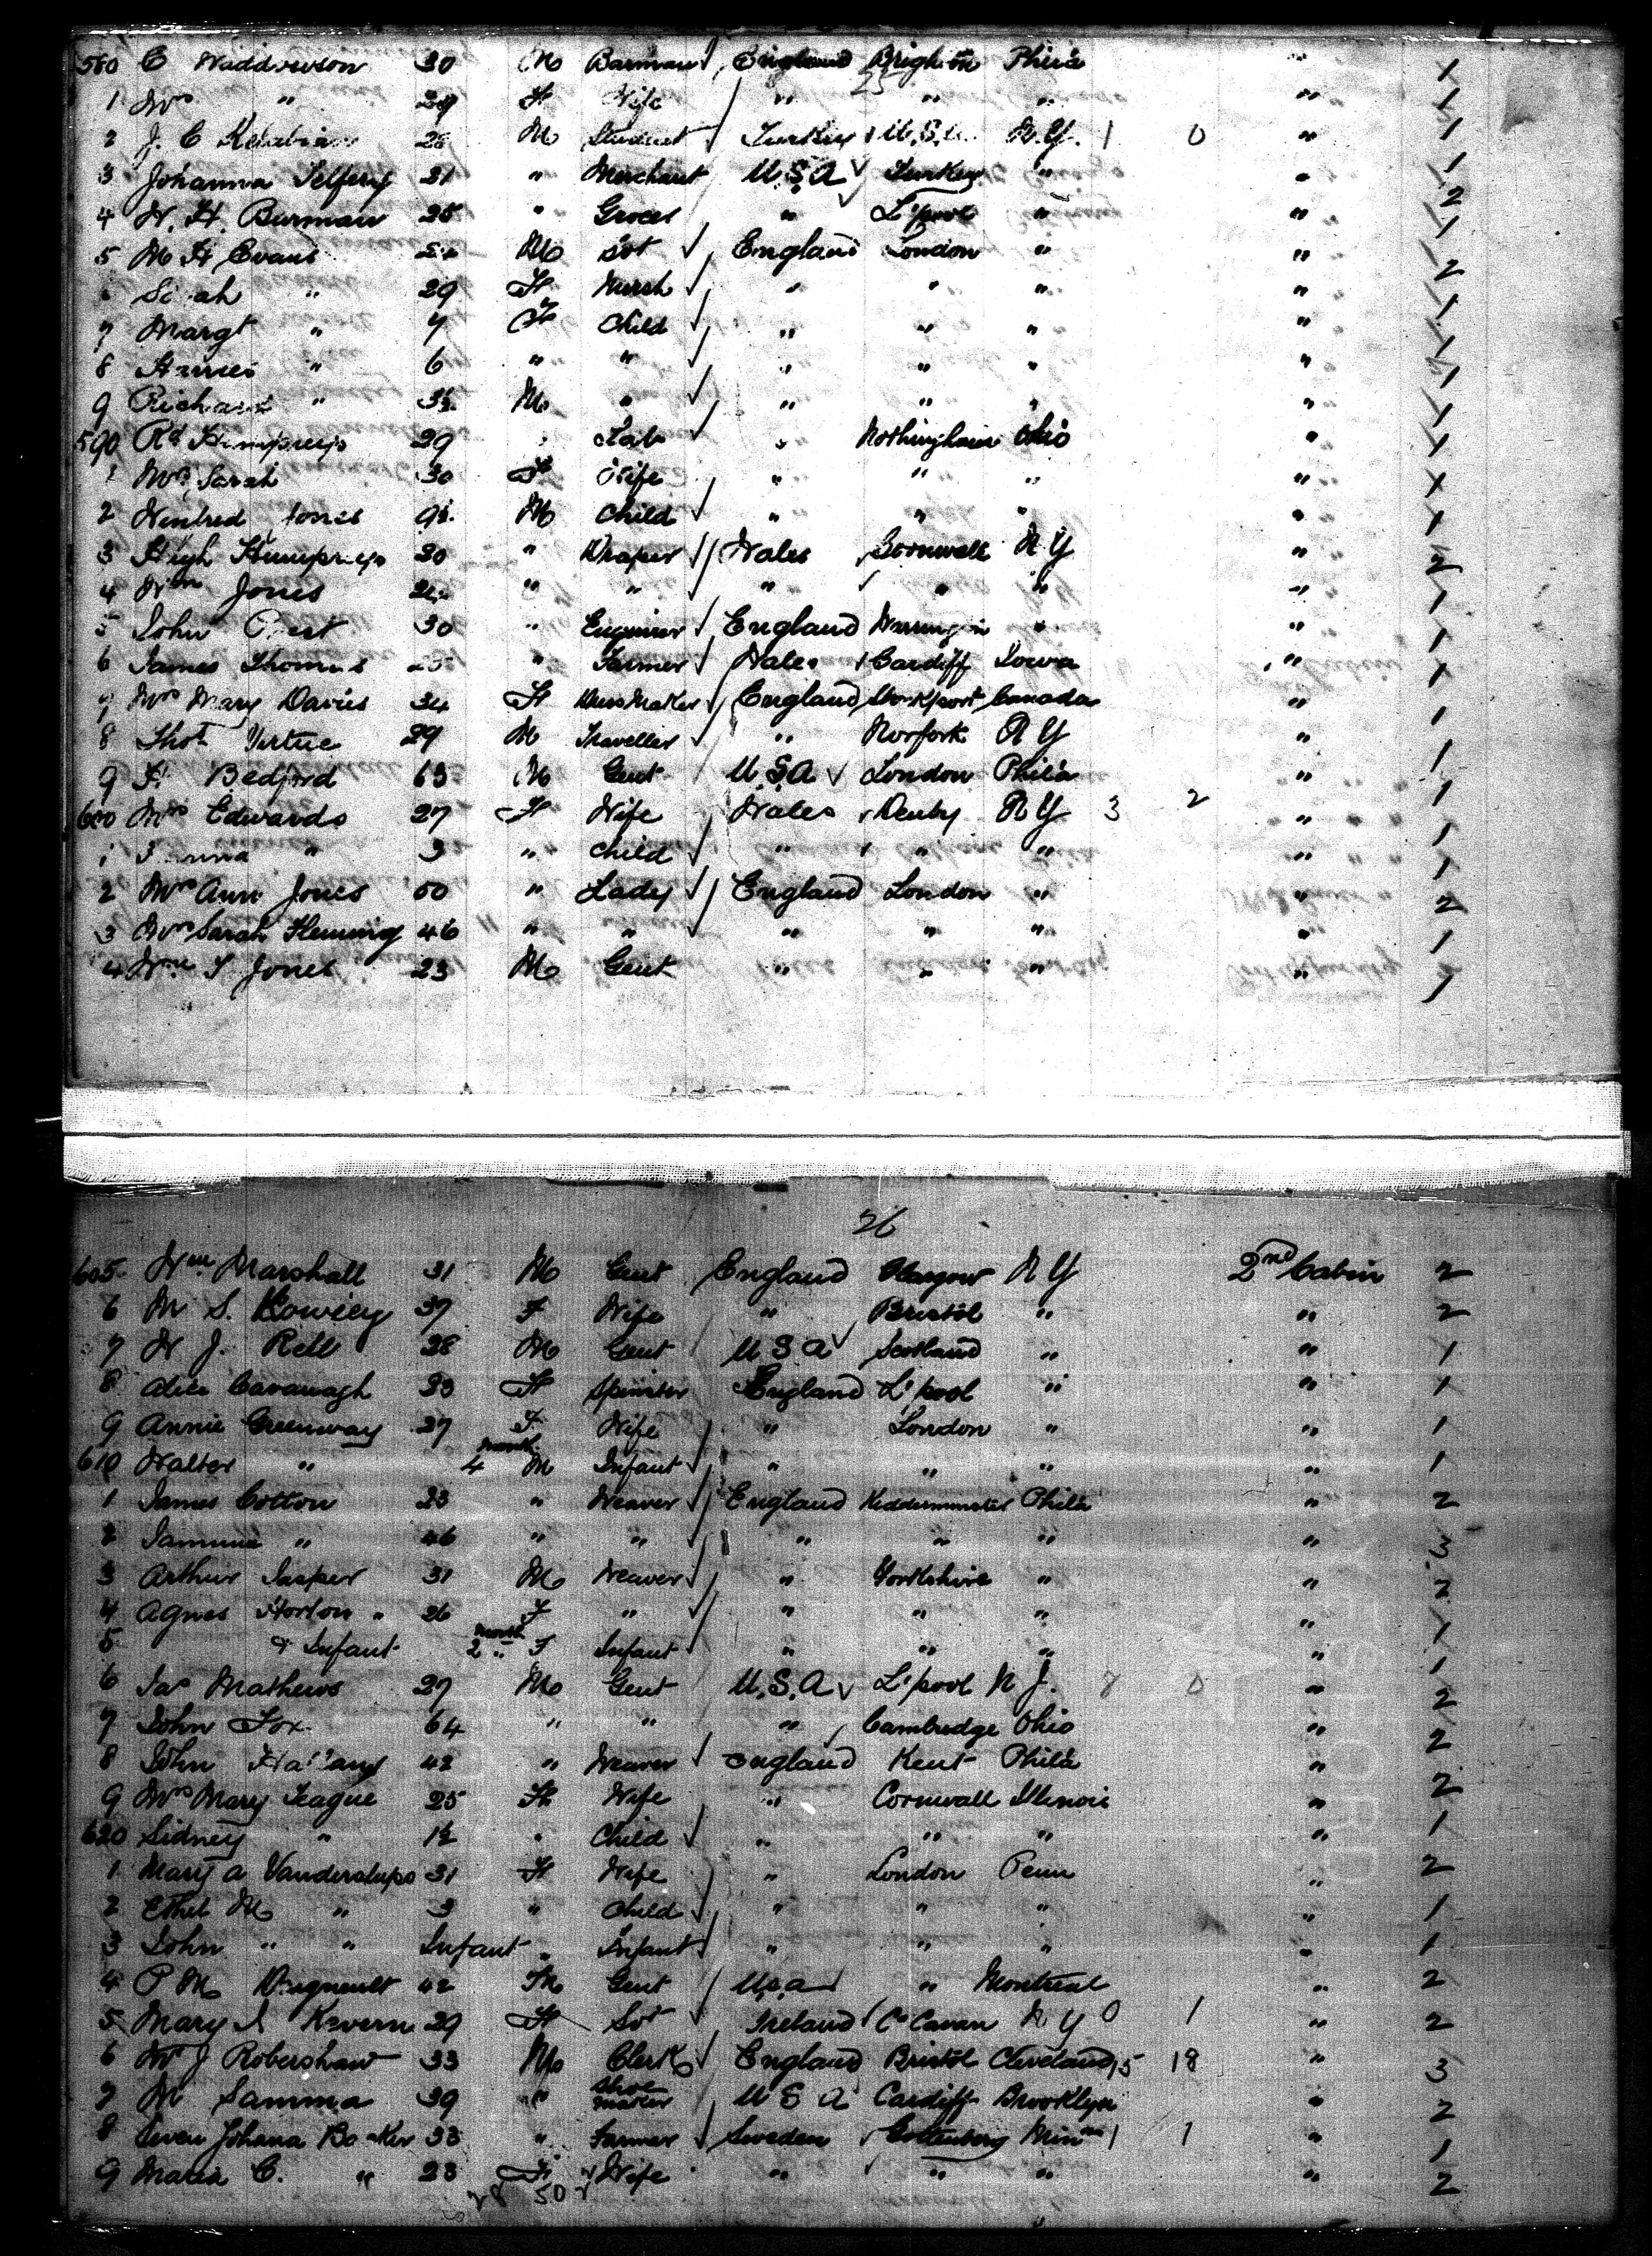 580 C Widdowson 30 M Barman England Brighton Phila " 1
25
1 Mrs " 29 F Wife " " " " 1
2 J. C 28 M Student Turkey U.S.A. N.Y. 1 0 " 1
3 Johanna 21 " Merchant U.S.A Turkey " " 1
4 W. H. Burman 25 " Grocer " L'pool " " 2
5 M H Evans M Sot England London " " 1
Sarah " 29 F Nursh " " " " 2
7 Margt " 7 F Child " " " " 1
8 " 6 " " " " " " 1
9 Richard " M " " " " " 1
590 Rd Humphreys 29 Lab " Nothingham Ohio " 1
1 Mrs Sarah 30 F Wife " " " " 1
2 Jones M Child " " " " 1
3 Hugh Humphreys 30 " Draper Wales Cornwall N Y " 2
4 Wm Jones " " " " " " 1
5 John 30 " Engineer England " " 1
6 James Thomas " Farmer Wales Cardiff Iowa " 1
7 Mrs Mary Davies 34 F DressMaker England Stockport Canada " 1
8 Thos Virtue 29 M Traveller " Norfork N Y " 1
9 F. Bedford 63 M Gent U.S.A London Phila " 1
600 Mrs Edwards 27 F Wife Wales Denby N Y 3 2 " 1
1 " 3 " Child " " " " 1
2 Mrs Ann Jones 50 " Lady England London " " 2
3 Mrs Sarah Fleming 46 " " " " " " 1
4 Wm S Jones 23 M Gent " " " " 1
26
605 Wm Marshall 31 M Gent England Glasgow N Y 2nd Cabin 2
6 M S. 37 F Wife " Bristol " " 2
7 W J. Rell 28 M Gent U S A Scotland " " 1
8 Alice Cavanagh 33 F Spinster England L'pool " " 1
9 Annie Greenway 27 F Wife " London " " 1
610 Walter " 4 month M Infant " " " " 1
1 James Cotton 23 " Weaver England Kidderminster Phila " 2
2 " 46 " " " " " " 3
3 Arthur Jasper 31 M Weaver " Yorkshire " " 2
4 Agnes Horton " 26 F " " " " " 1
5 & Infant 2 month F Infant " " " " 1
6 Jas Mathews 27 M Gent U.S.A L'pool N J. 7 0 " 2
7 John Fox 64 " " " Cambridge Ohio " 2
8 John 42 " Weaver England Kent Phila " 2
9 Mrs Mary Teague 25 F Wife " Cornwall Illinois " 1
620 Sidney " 1½ " Child " " " " 2
1 Mary A 31 F Wife " London Penn " 1
2 Ethel M " 3 " Child " " " " 1
3 John " " Infant " Infant " " " " 1
4 P M 42 M Gent U.S.A " Montreal " 2
5 Mary 29 F Sot Ireland Co Cavan N Y 0 1 " 2
6 W J Robershaw 33 M Clerk England Bristol Cleveland 15 18 " 3
7 M Samma 39 " Shoe maker U S A Cardiff Brooklyn " 2
8 Johana 33 " Farmer Sweden Gottenberg Minn 1 1 " 1
9 Maria C. " 28 F Wife " " " " 2
28 50